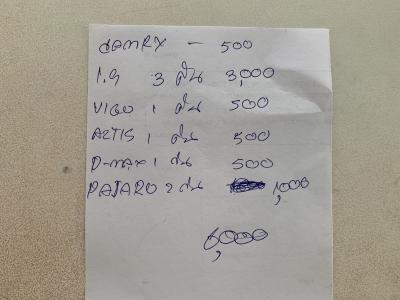 500
1.9 3 คัน 3,000
VIGO 1 คัน 500
ALTIS 1 คัน 500
D-MAX 1 คัน 500
PAJARO 2 คัน 1,000
6,000